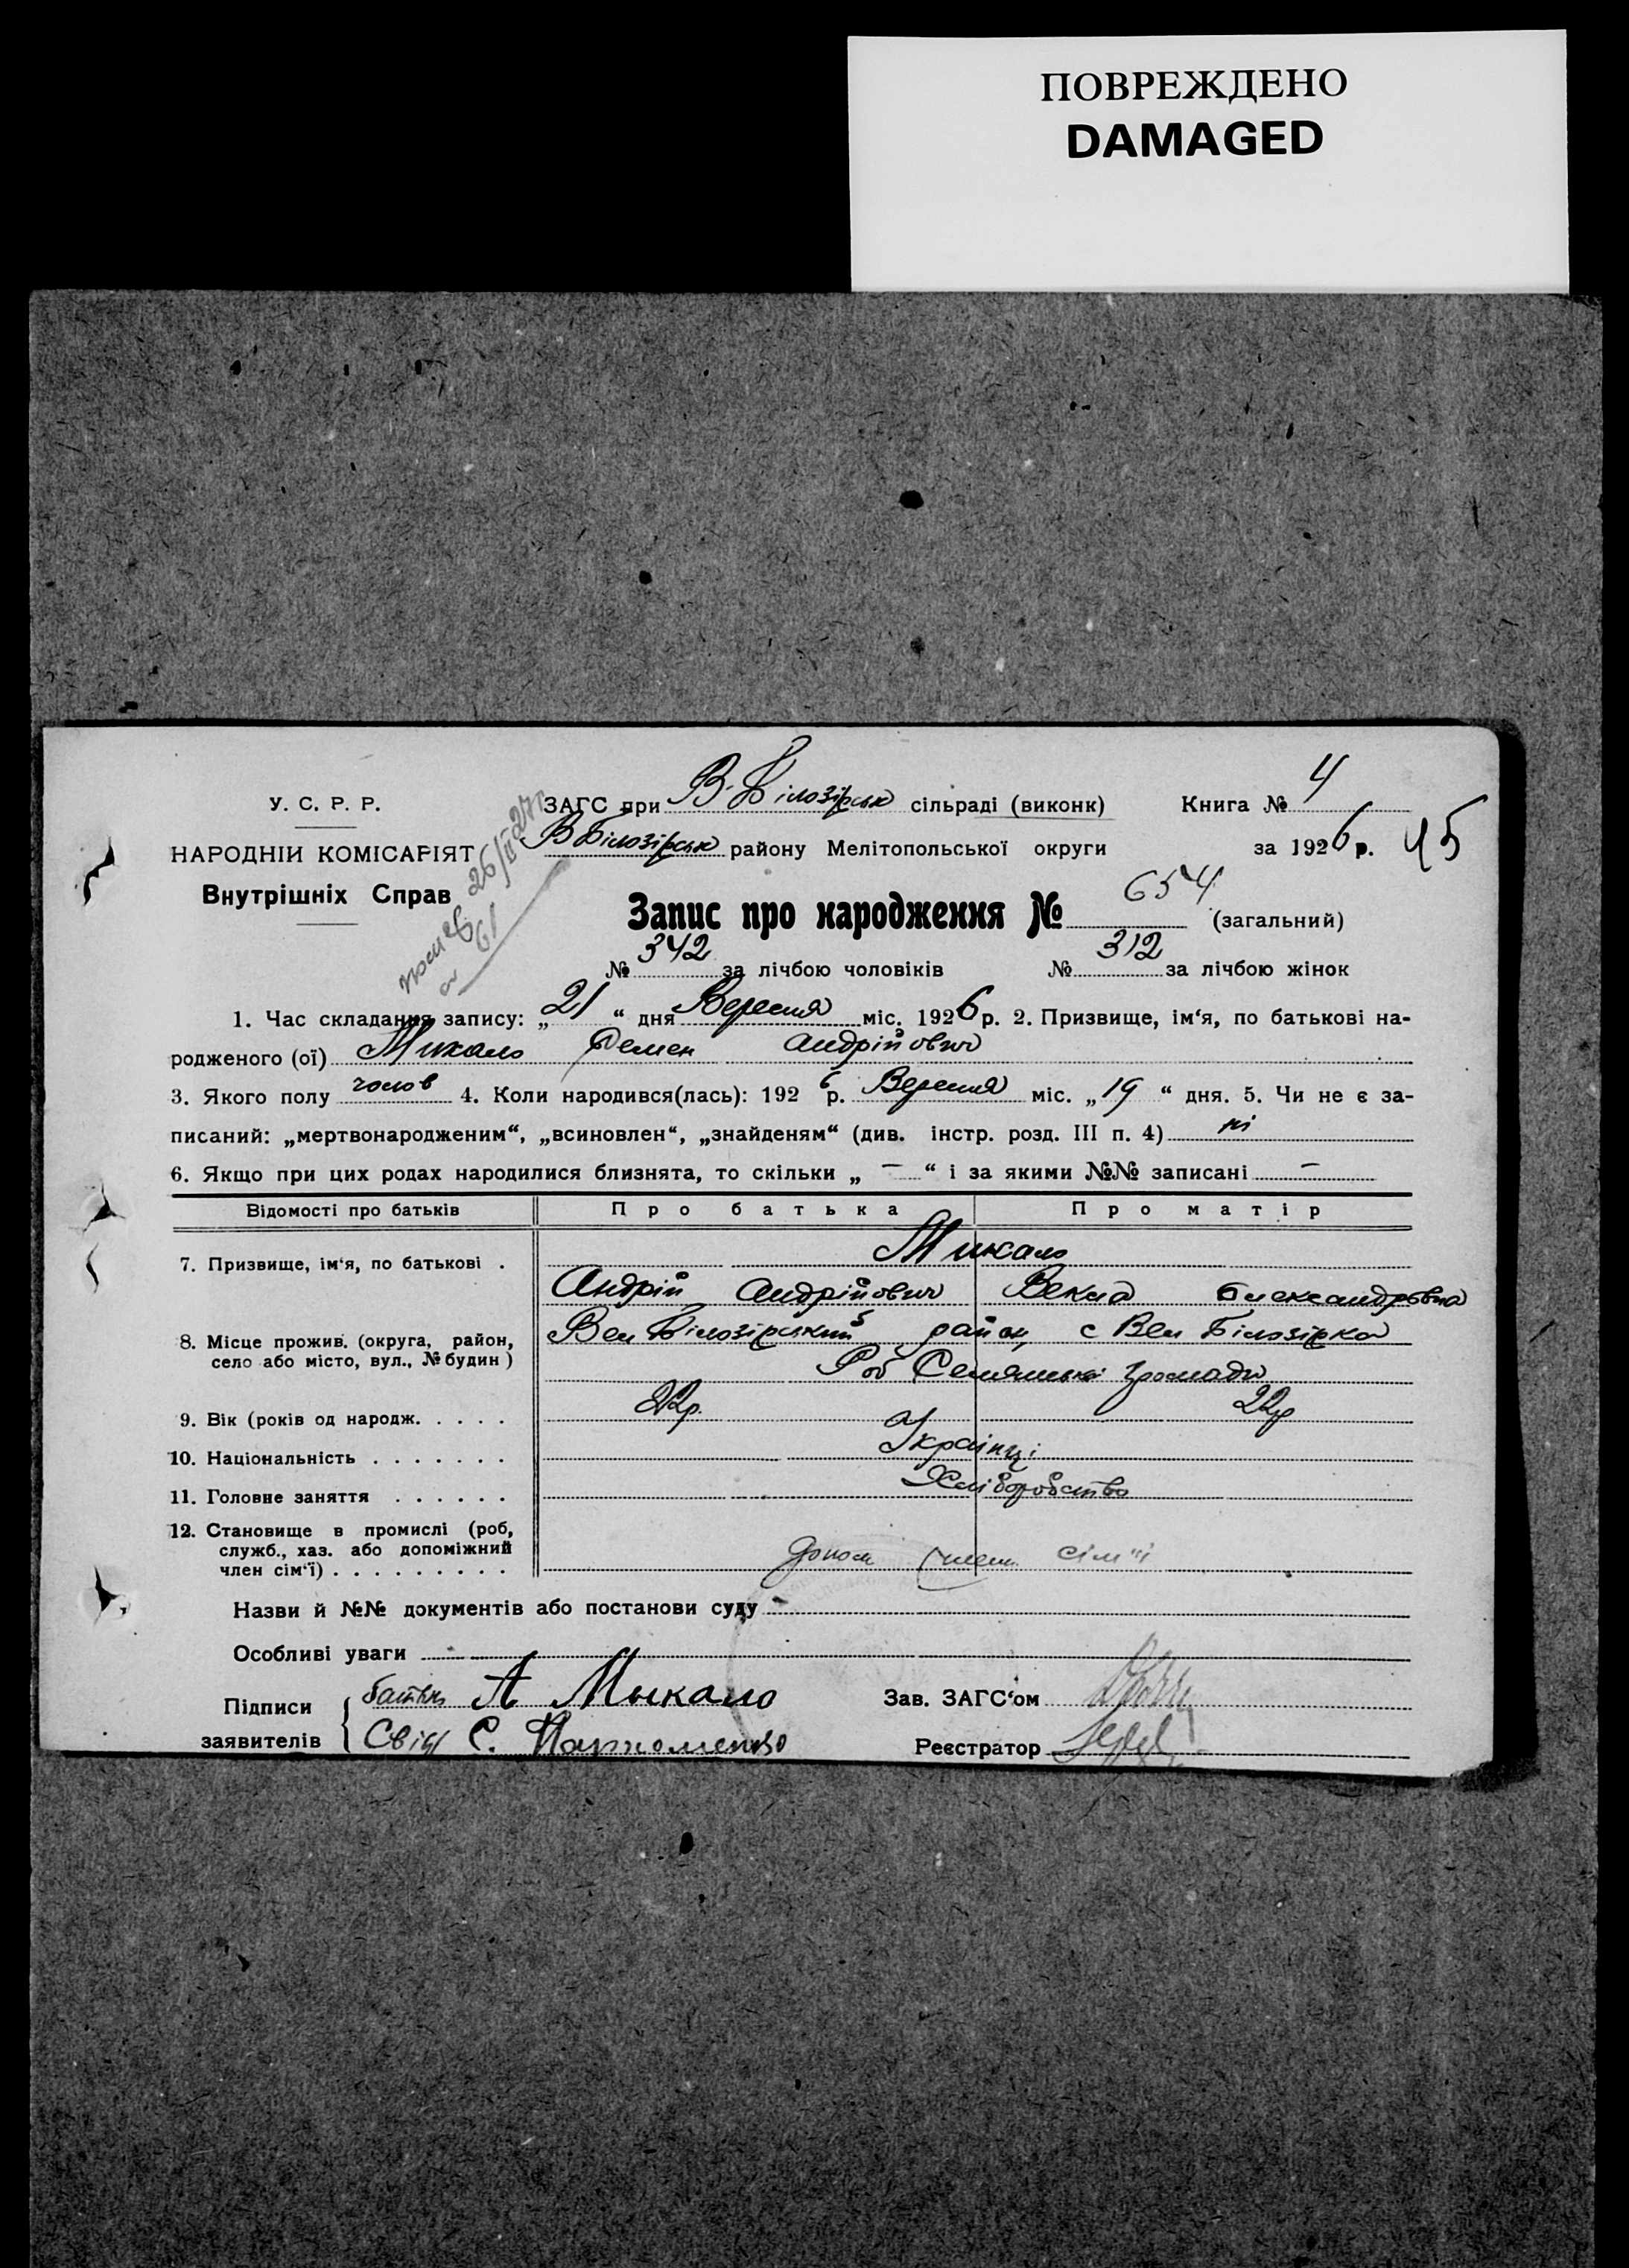 ПОВРЕЖДЕНО
DAMAGED
У. С. Р. Р.
НАРОДНІЙ КОМІСАРІЯТ
Внутрішніх Справ
26/II 27 г.
61
ЗАГС при В-Білозірськ сільраді (виконк) Книга № 4
В Білозірськ району Мелітопольської округи за 1926 р. 45
Запис про народження № 654 (загальний)
№ 342 за лічбою чоловіків № 312 за лічбою жінок
1. Час складання запису: „21“ дня Вересня міс. 1926 р. 2. Призвище, ім‘я, по батькові на-
родженого (ої) Микало Семен Андрійович
3. Якого полу чолов 4. Коли народився(лась): 1926 р. Вересня міс. „19“ дня. 5. Чи не є за-
писаний: „мертвонародженим“, „всиновлен“, „знайденям“ (див. інстр. розд. III п. 4) ні
6. Якщо при цих родах народилися близнята, то скільки „ — “ і за якими №№ записані —
Відомості про батьків Про батька Про матір
7. Призвище, ім‘я, по батькові . Микало
Андрій Андрійович Векла Олександрівна
8. Місце прожив. (округа, район, село або місто, вул., № будин ) Вел Білозірський район, с Вел Білозірка
Роб Селянської громади
9. Вік (років од народж. . . . . 22р. 22р
10. Національність . . . . . . . Українці
11. Головне заняття . . . . . . Хліборобство
12. Становище в промислі (роб,
служб., хаз. або допоміжний
член сім‘ї) . . . . . . . . . допом член сім"ї
Назви й №№ документів або постанови суду -
Особливі уваги -
Підписи батьк А Мыкало Зав. ЗАГС‘ом
заявителів Свід С. Пархоменко Реєстратор